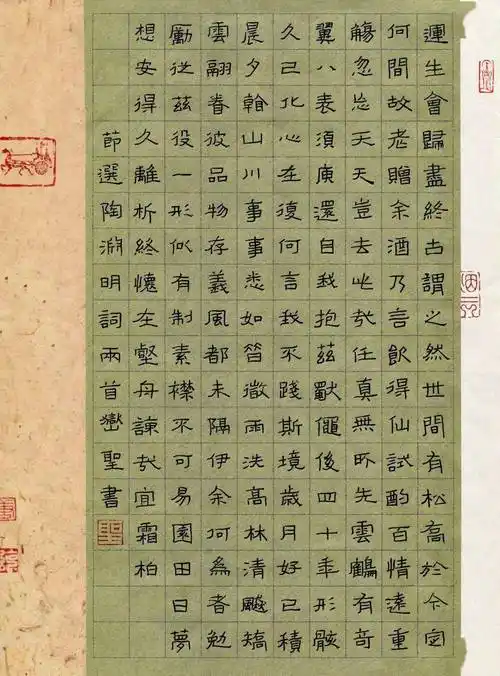 運生會歸盡終古謂之然世間有松高於今定
何間故老贈余酒乃言飲得仙試酌百情遠重
觴忽忘天天豈去此哉任真無所先雲鶴有奇
翼八表須臾還自我抱茲獸僶後四十年形骸
久已化心在復何言我不踐斯境歲月好已積
晨夕翰山川事事悉如昔微雨洗高林清飈矯
雲翮眷彼品物存義風都未隔伊余何為者勉
勵從茲役一形似有制素襟不可易園田日夢
想安得久離析終懷在壑舟諫哉宜霜柏
節選陶淵明詞兩首巒聖書